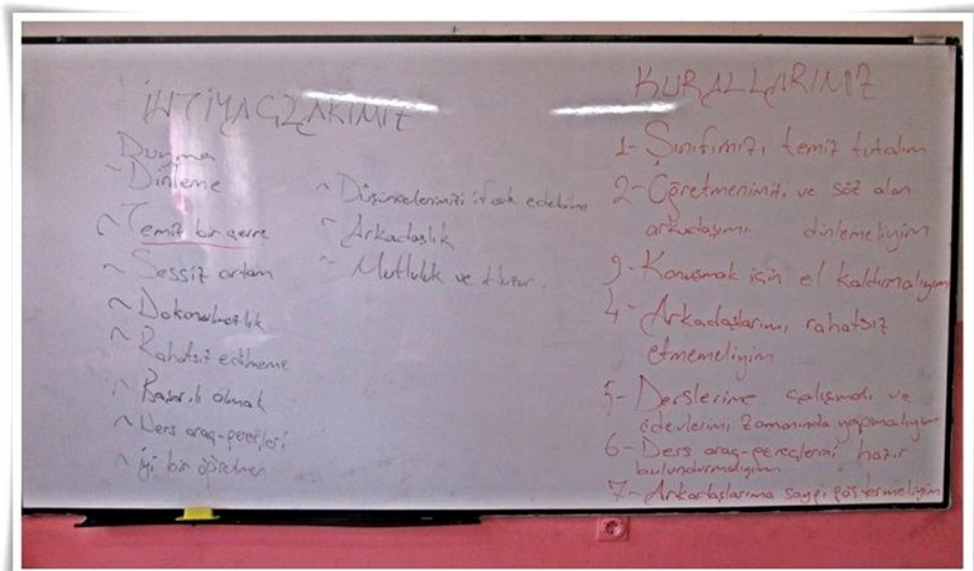 İHTİYAÇLARIMIZ
Duyma
~ Dinleme
~ Temiz bir çevre
~ Sessiz ortam
~ Dokunulmazlık
~ Rahatsız edilmeme
~ Başarılı olmak
~ Ders araç-gereçleri
~ iyi bir öğretmen
~ Düşüncelerimizi ifade edebilme
~ Arkadaşlık
~ Mutluluk ve Huzur.
KURALLARIMIZ
1- Sınıfımızı temiz tutalım
2- Öğretmenimizi ve söz alan
arkadaşımı dinlemeliyim
3- Konuşmak için el kaldırmalıyım
4- Arkadaşlarımı rahatsız
etmemeliyim
5- Derslerime çalışmalı ve
ödevlerimi zamanında yapmalıyım
6- Ders araç-gereçlerimi hazır
bulundurmalıyım
7- Arkadaşlarıma saygı göstermeliyim